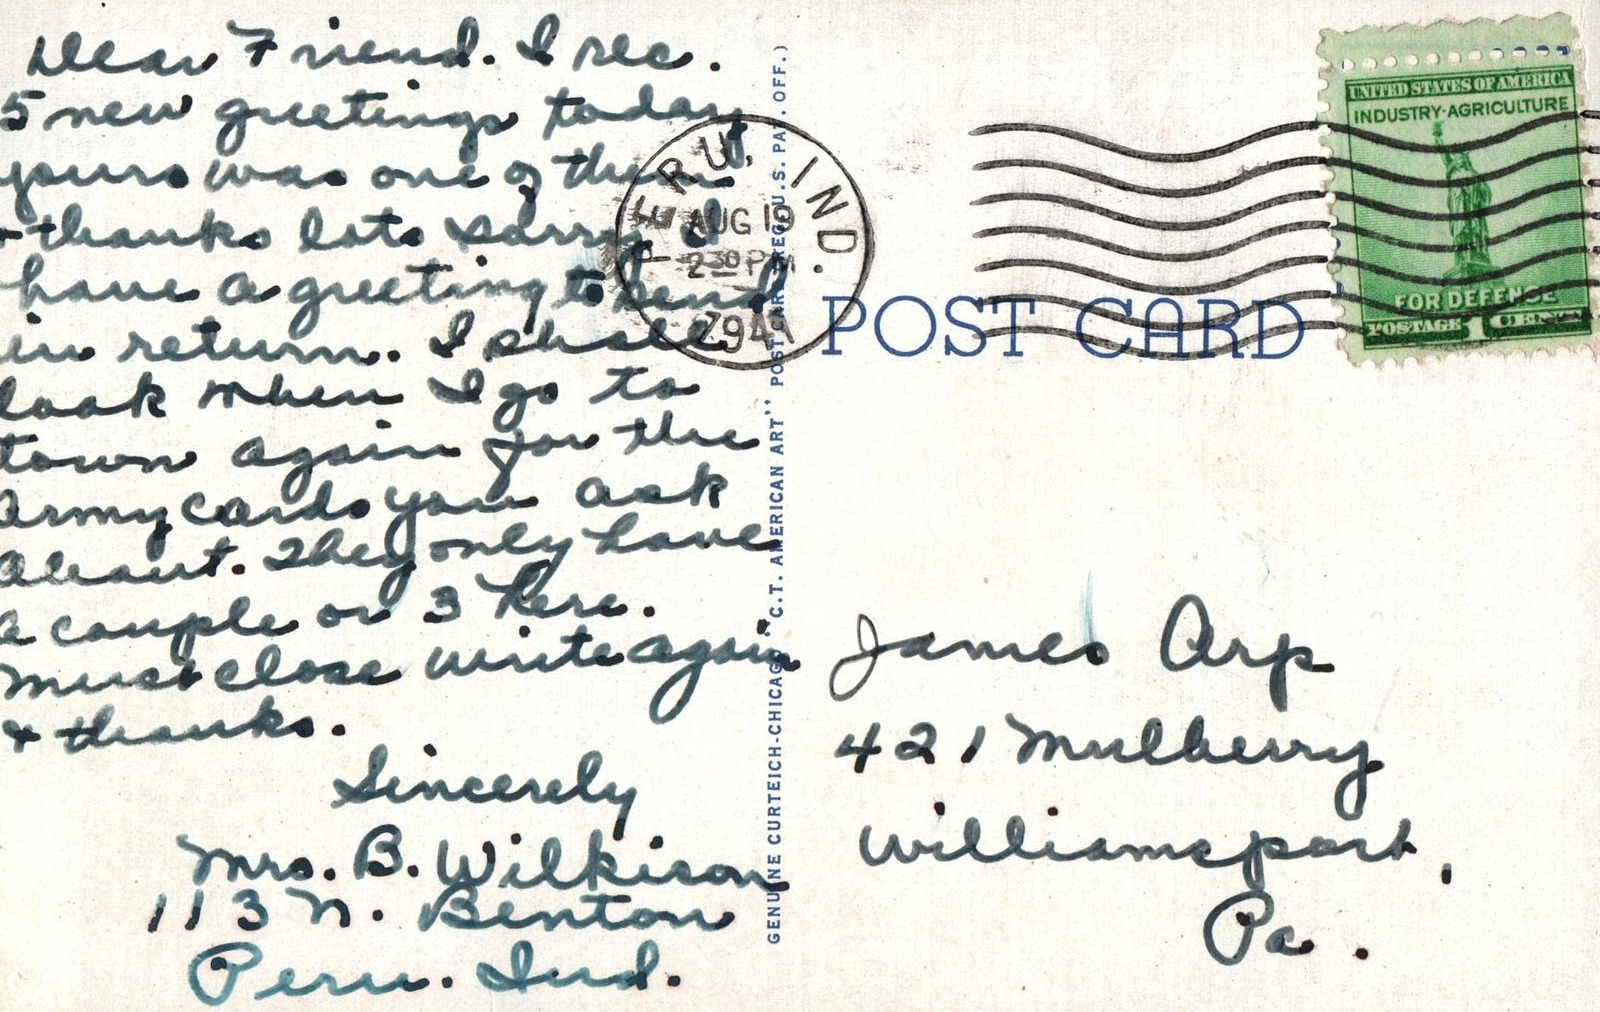 Dear Friend. I rec.
5 new greetings today
yours was one of them
+ thanks lots sorry I
have a greeting to send
in return. I shall
look when I go to
town again for the
Army cards you ask
About. They only have
a couple or 3 here.
Must close write again
& thanks.
Sincerely
Mrs. B. Wilkison
113 N. Benton
Peru. Ind.
GENUINE CURTEICH-CHICAGO "C.T. AMERICAN ART" POST CARD (REG. U.S. PAT. OFF.)
PERU, IND.
AUG 19
2 30 PM
1941
POST CARD
UNITED STATES OF AMERICA
INDUSTRY-AGRICULTURE
FOR DEFENSE
POSTAGE 1 CENT
James Arp
421 Mulberry
Williamsport,
Pa.